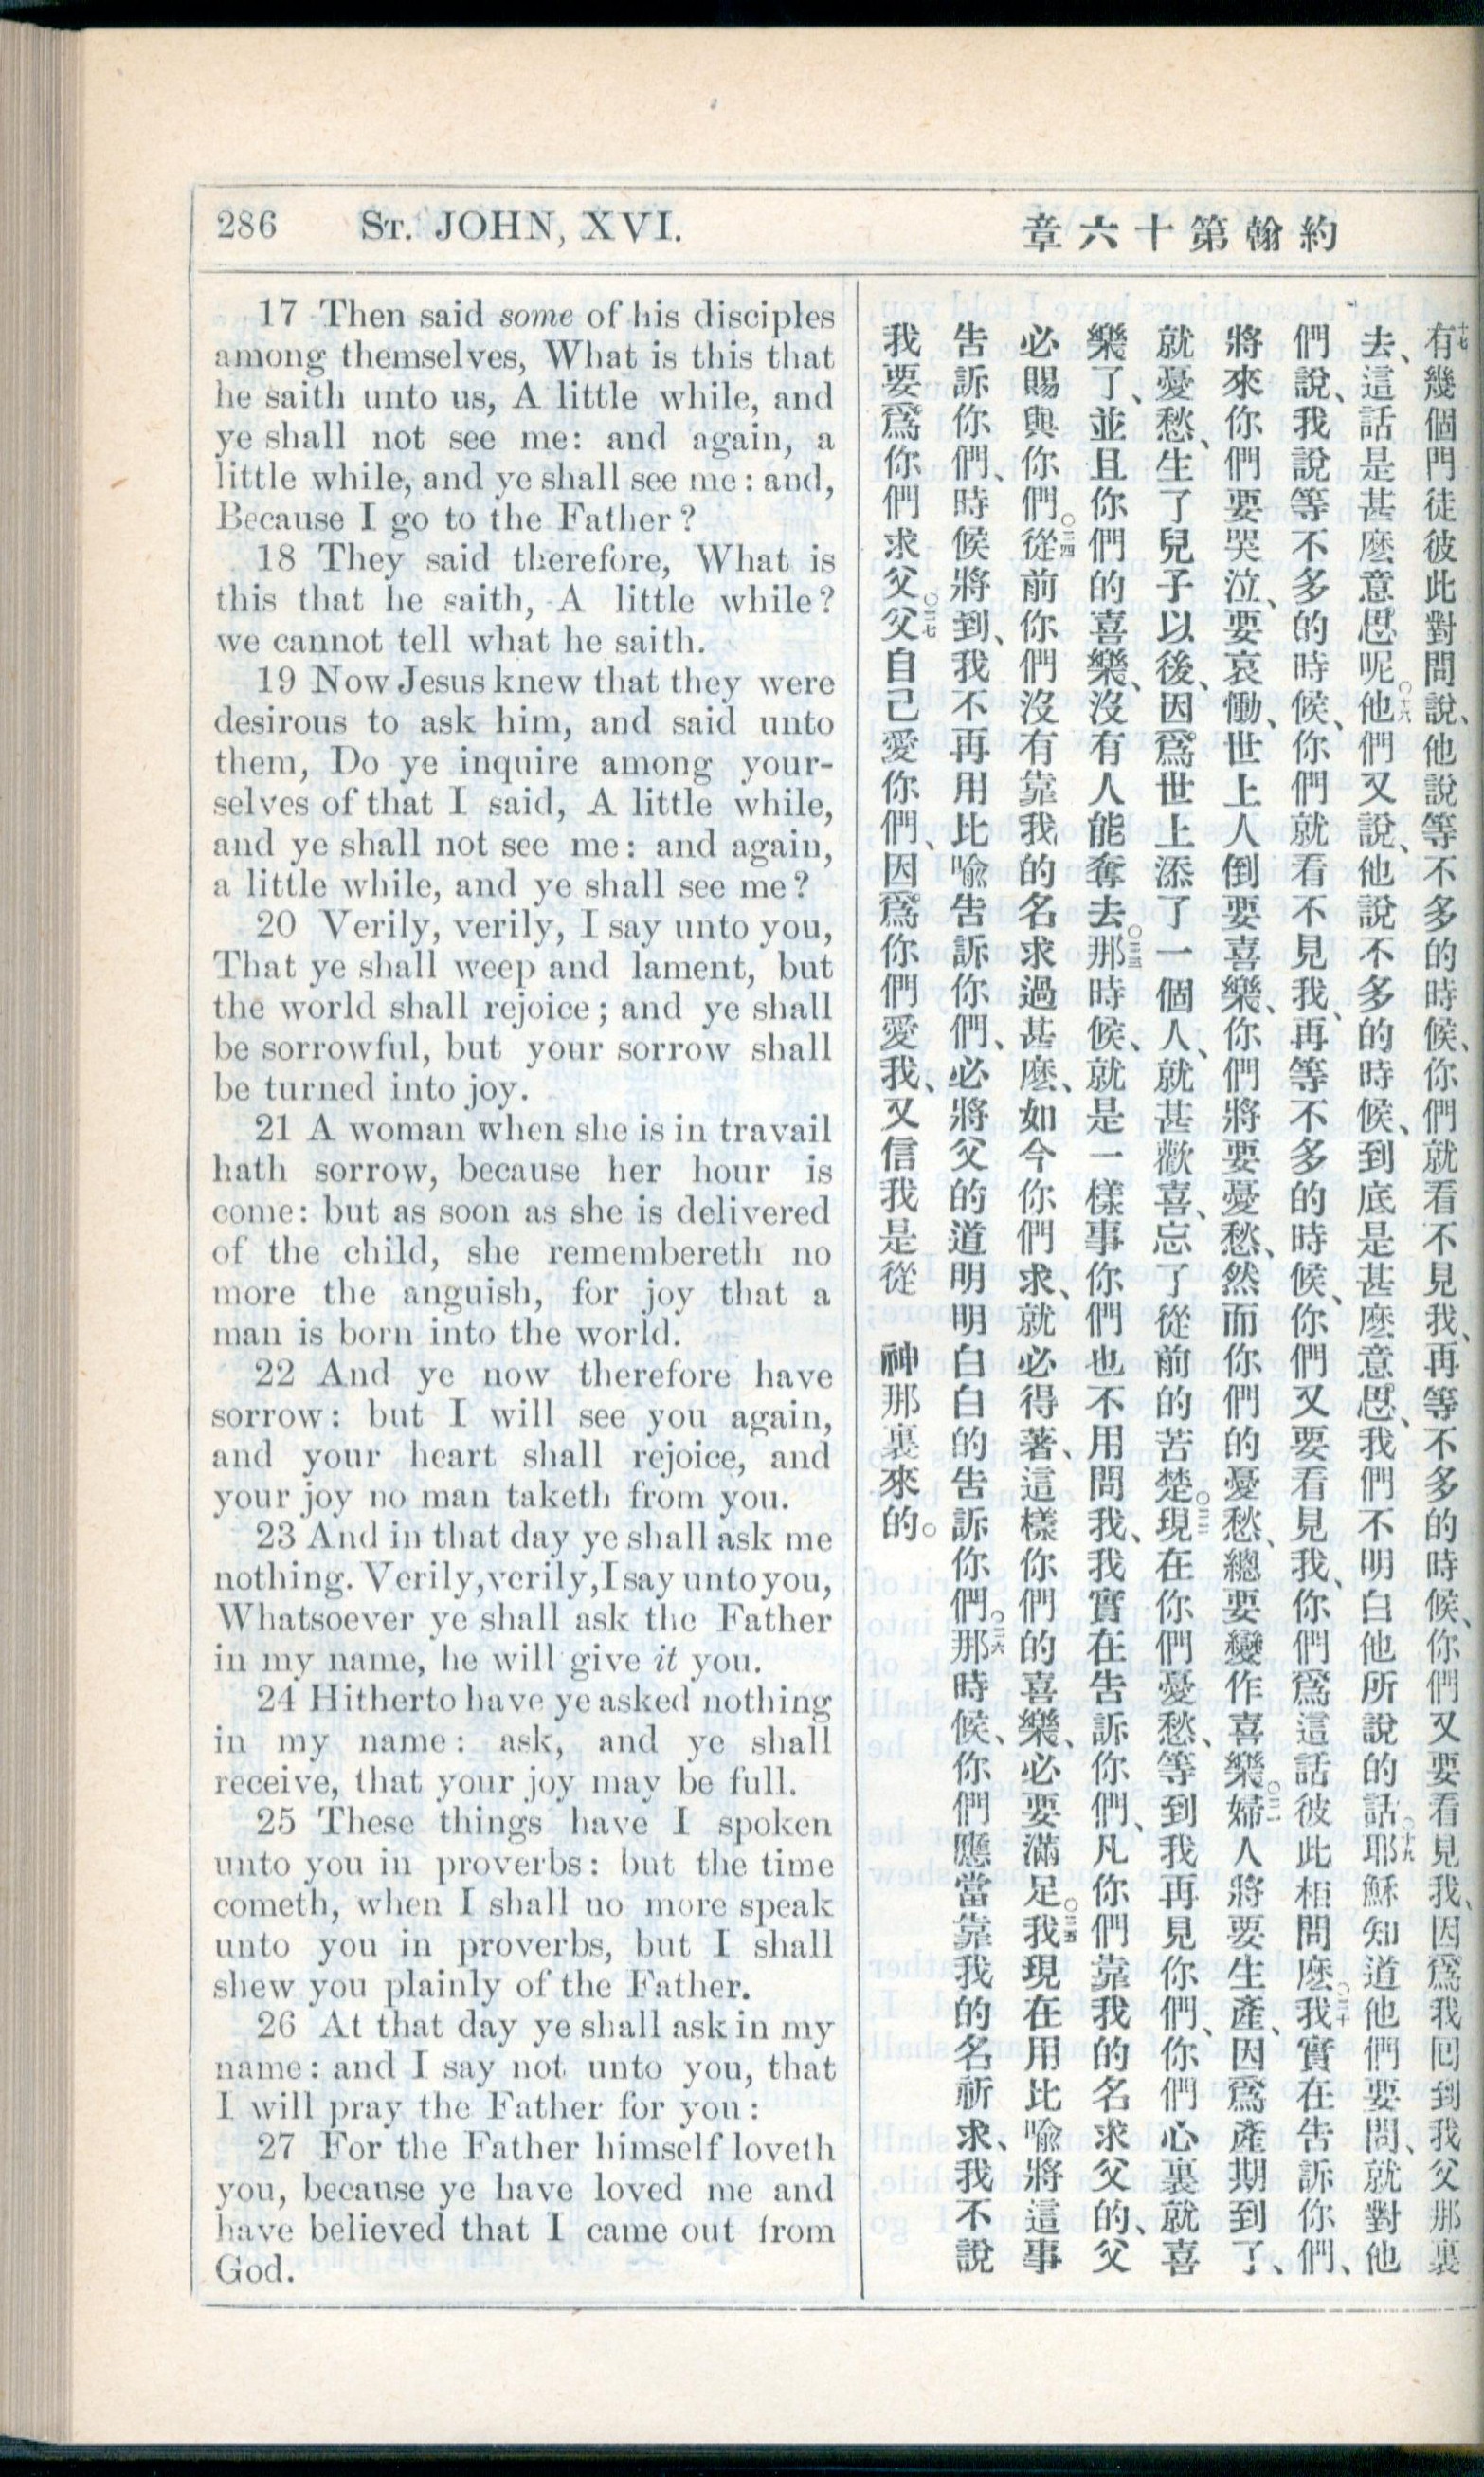 286 St. JOHN, XVI.
約翰第十六章
17 Then said some of his disciples
among themselves, What is this that
he saith unto us, A little while, and
ye shall not see me: and again, a
little while, and ye shall see me: and,
Because I go to the Father?
18 They said therefore, What is
this that he saith, A little while?
we cannot tell what he saith.
19 Now Jesus knew that they were
desirous to ask him, and said unto
them, Do ye inquire among your-
selves of that I said, A little while,
and ye shall not see me: and again,
a little while, and ye shall see me?
20 Verily, verily, I say unto you,
That ye shall weep and lament, but
the world shall rejoice; and ye shall
be sorrowful, but your sorrow shall
be turned into joy.
21 A woman when she is in travail
hath sorrow, because her hour is
come: but as soon as she is delivered
of the child, she remembereth no
more the anguish, for joy that a
man is born into the world.
22 And ye now therefore have
sorrow: but I will see you again,
and your heart shall rejoice, and
your joy no man taketh from you.
23 And in that day ye shall ask me
nothing. Verily, verily, I say unto you,
Whatsoever ye shall ask the Father
in my name, he will give it you.
24 Hitherto have ye asked nothing
in my name: ask, and ye shall
receive, that your joy may be full.
25 These things have I spoken
unto you in proverbs: but the time
cometh, when I shall no more speak
unto you in proverbs, but I shall
shew you plainly of the Father.
26 At that day ye shall ask in my
name: and I say not unto you, that
I will pray the Father for you:
27 For the Father himself loveth
you, because ye have loved me and
have believed that I came out from
God.
十七有幾個門徒彼此對問說、他說等不多的時候、你們就看不見我、再等不多的時候、你們又要看見我、因爲我回到我父那裏
去、這話是甚麽意思呢。○十八他們又說、他說不多的時候、到底是甚麽意思、我們不明白他所說的話。○十九耶穌知道他們要問、就對他
們說、我說等不多的時候、你們就看不見我、再等不多的時候、你們又要看見我、你們爲這話彼此相問麽。○二十我實在告訴你們、
將來你們要哭泣、要哀慟、世上人倒要喜樂、你們將要憂愁、然而你們的憂愁、總要變作喜樂。○二一婦人將要生產、因爲產期到了、
就憂愁、生了兒子以後、因爲世上添了一個人、就甚歡喜、忘了從前的苦楚。○二二現在你們憂愁、等到我再見你們、你們心裏就喜
樂了、並且你們的喜樂、沒有人能奪去。○二三那時候、就是一樣事你們也不用問我、我實在告訴你們、凡你們靠我的名求父的、父
必賜與你們。○二四從前你們沒有靠我的名求過甚麽、如今你們求、就必得著、這樣你們的喜樂、必要滿足。○二五我現在用比喩將這事
告訴你們、時候將到、我不再用比喩告訴你們、必將父的道明明白白的告訴你們。○二六那時候、你們應當靠我的名祈求、我不說
我要爲你們求父。○二七父自己愛你們、因爲你們愛我、又信我是從 神那裏來的。